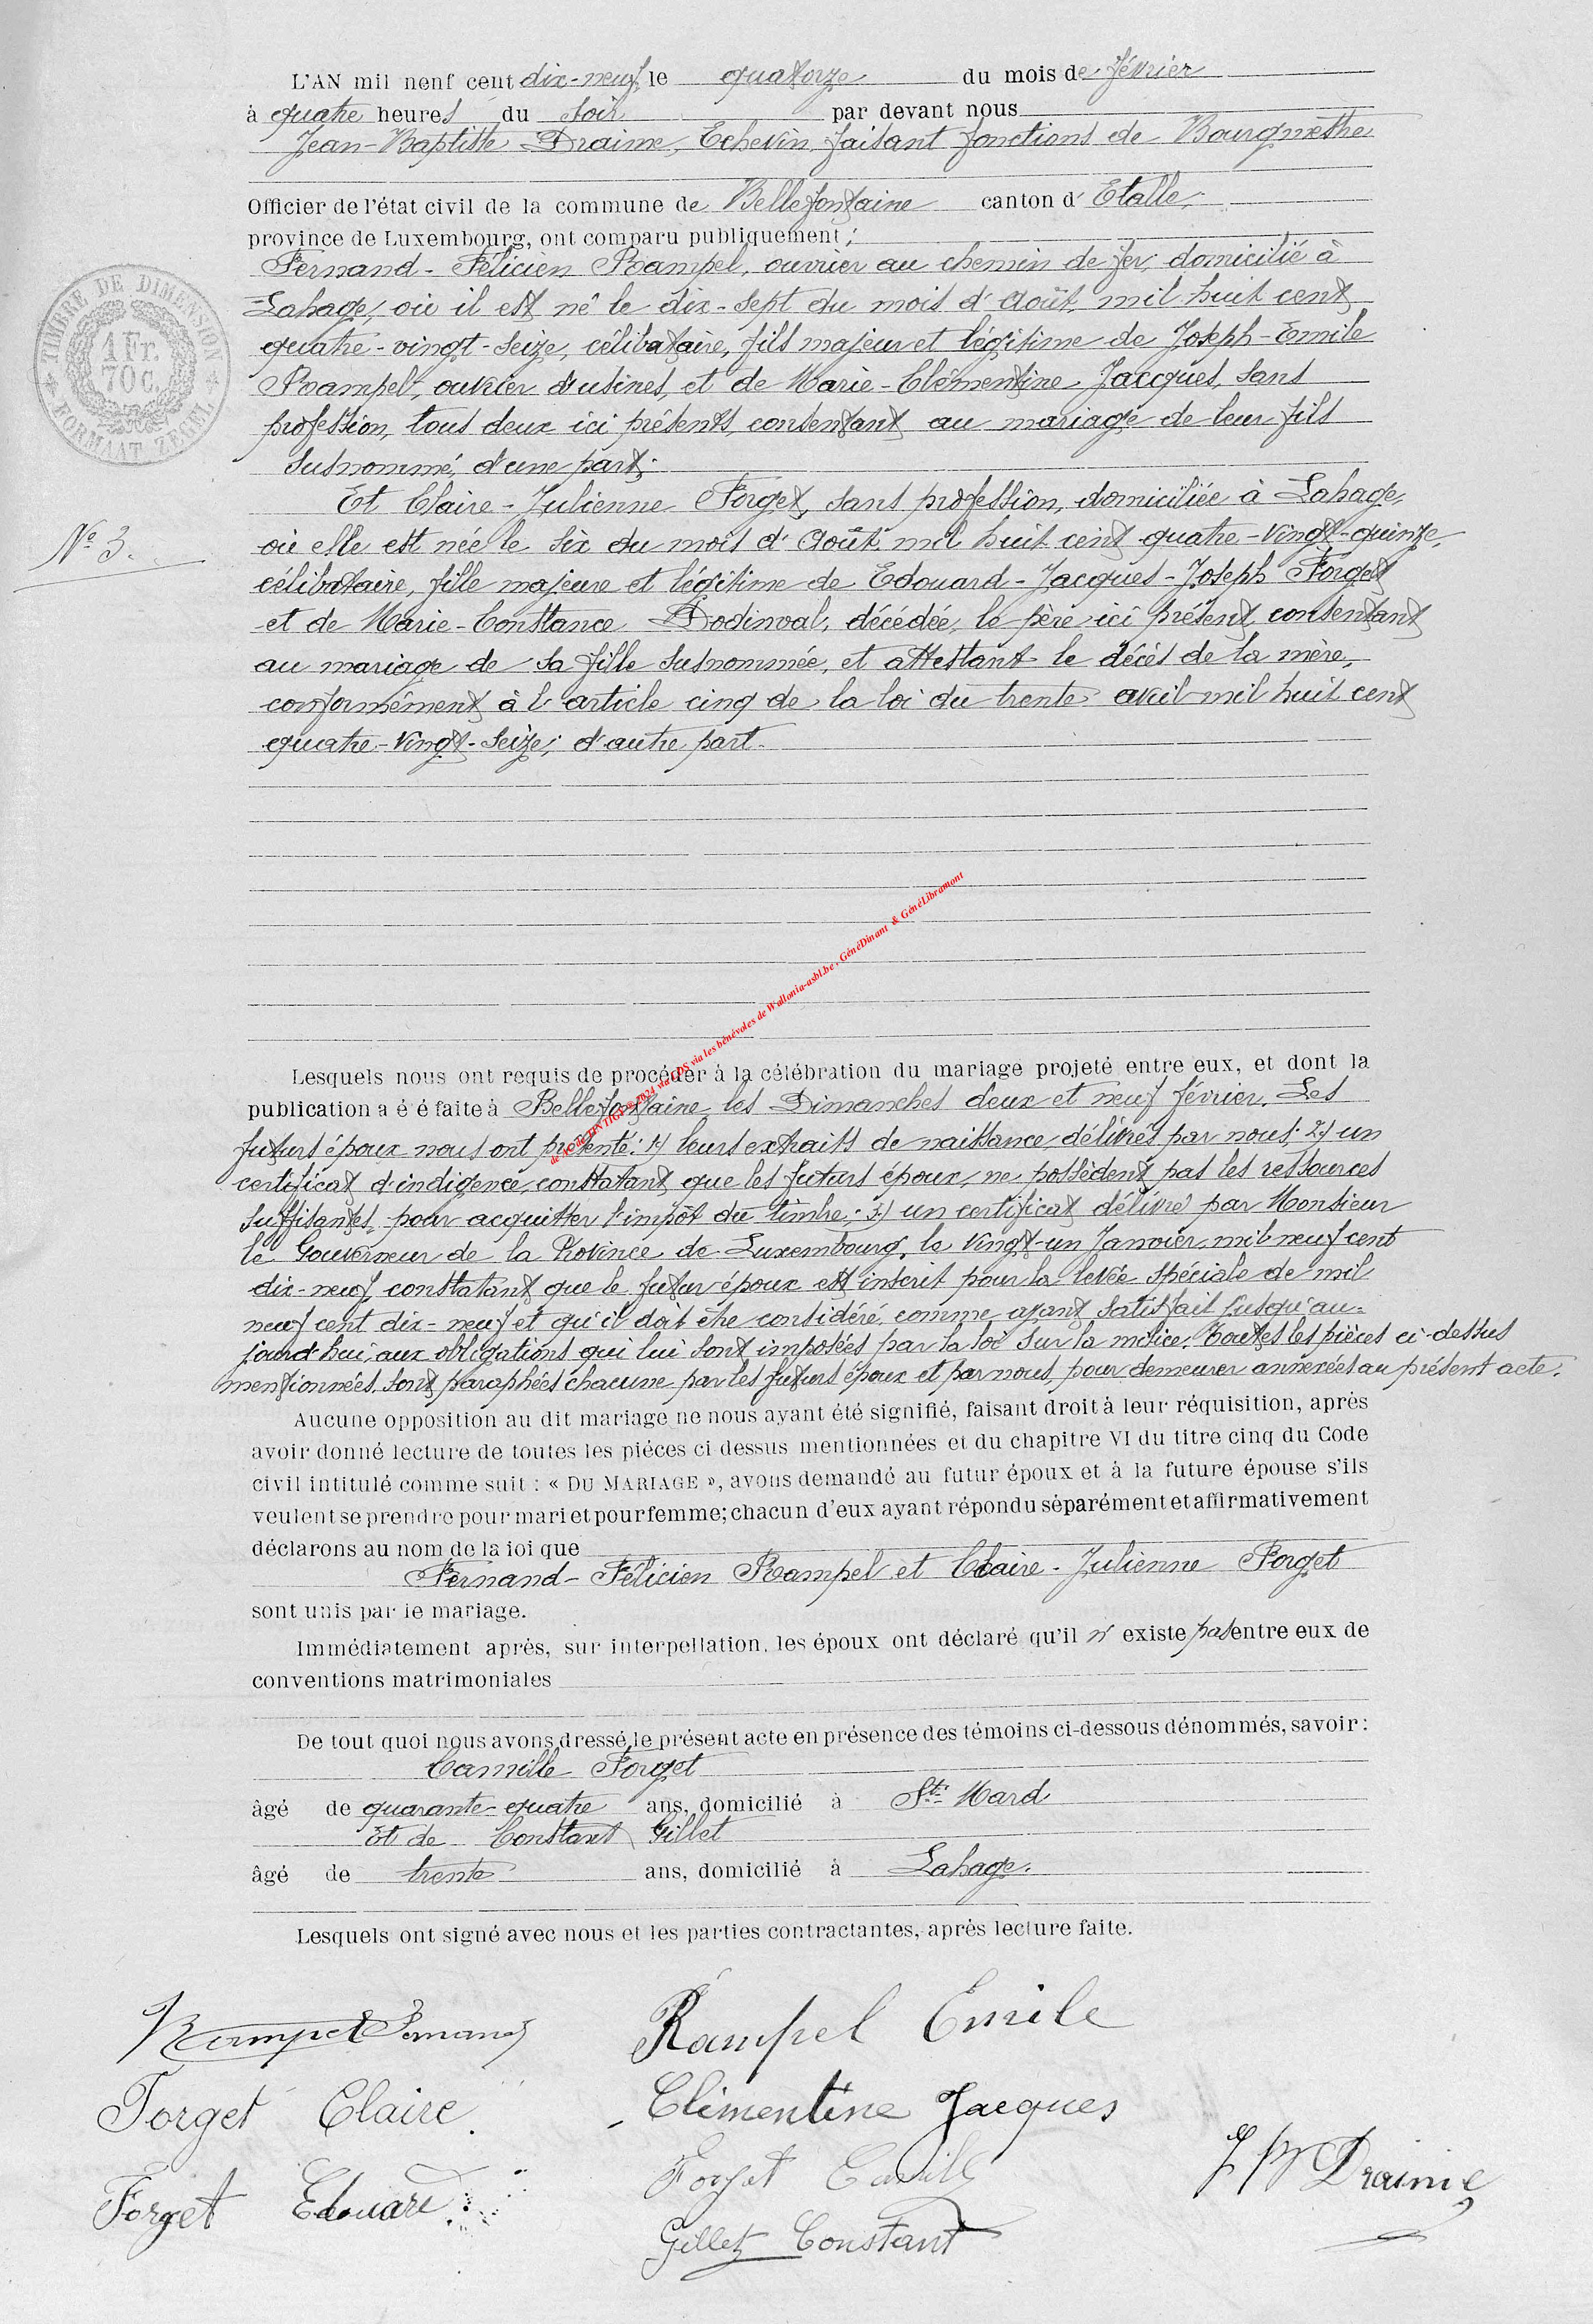 L'AN mil neuf cent dix-neuf, le quatorze du mois de février
à quatre heures du soir par devant nous
Jean-Baptiste Draime, Echevin faisant fonctions de Bourgmestre
Officier de l'état civil de la commune de Bellefontaine canton d'Etalle,
province de Luxembourg, ont comparu publiquement ;
Fernand-Félicien Rampel, ouvrier au chemin de fer, domicilié à
Lahage, où il est né le dix-sept du mois d'Août mil huit cent
quatre-vingt-seize, célibataire, fils majeur et légitime de Joseph-Emile
Rampel, ouvrier d'usines, et de Marie-Clémentine Jacques, sans
profession, tous deux ici présents, consentant au mariage de leur fils
susnommé, d'une part.
Et Claire-Julienne Forget, sans profession, domiciliée à Lahage,
N° 3.
où elle est née le six du mois d'Août mil huit cent quatre-vingt-quinze,
célibataire, fille majeure et légitime de Edouard-Jacques-Joseph Forget
et de Marie-Constance Dodinval, décédée, le père ici présent consentant
au mariage de sa fille susnommée, et attestant le décès de la mère,
conformément à l'article cinq de la loi du trente avril mil huit cent
quatre-vingt-seize; d'autre part.
Lesquels nous ont requis de procéder à la célébration du mariage projeté entre eux, et dont la
publication a é é faite à Bellefontaine les Dimanches deux et neuf février. Les
futurs époux nous ont présenté: 1) leurs extraits de naissance, délivrés par nous; 2) un
certificat d'indigence, constatant que les futurs époux, ne possèdent pas les ressources
suffisantes pour acquitter l'impôt du timbre; 3) un certificat délivré par Monsieur
le Gouverneur de la Province de Luxembourg, le vingt-un Janvier mil neuf cent
dix-neuf, constatant que le futur époux est inscrit pour la levée spéciale de mil
neuf cent dix-neuf et qu'il doit être considéré comme ayant satisfait jusqu'au-
jourd'hui, aux obligations qui lui sont imposées par la loi sur la milice. Toutes les pièces ci-dessus
mentionnées, sont paraphées chacune par les futurs époux et par nous, pour demeurer annexées au présent acte.
Aucune opposition au dit mariage ne nous ayant été signifié, faisant droit à leur réquisition, après
avoir donné lecture de toutes les pièces ci dessus mentionnées et du chapitre VI du titre cinq du Code
civil intitulé comme suit : « DU MARIAGE », avons demandé au futur époux et à la future épouse s'ils
veulent se prendre pour mari et pour femme; chacun d'eux ayant répondu séparément et affirmativement
déclarons au nom de la loi que
Fernand-Félicien Rampel et Claire-Julienne Forget
sont unis par le mariage.
Immédiatement après, sur interpellation, les époux ont déclaré qu'il n'existe pas entre eux de
conventions matrimoniales
De tout quoi nous avons dressé le présent acte en présence des témoins ci-dessous dénommés, savoir :
Camille Forget
âgé de quarante-quatre ans, domicilié à St. Mard
Et de Constant Gillet
âgé de trente ans, domicilié à Lahage.
Lesquels ont signé avec nous et les parties contractantes, après lecture faite.
Rampel Fernand
Rampel Emile
Forget Claire.
Clémentine Jacques
Forget Camille
J B Draime
Forget Edouard
Gillet Constant
TIMBRE DE DIMENSION
1 Fr.
70 C.
FORMAAT ZEGEL
via les bénévoles de Wallonia-asbl.be, GénéDinant & GénéLibramont